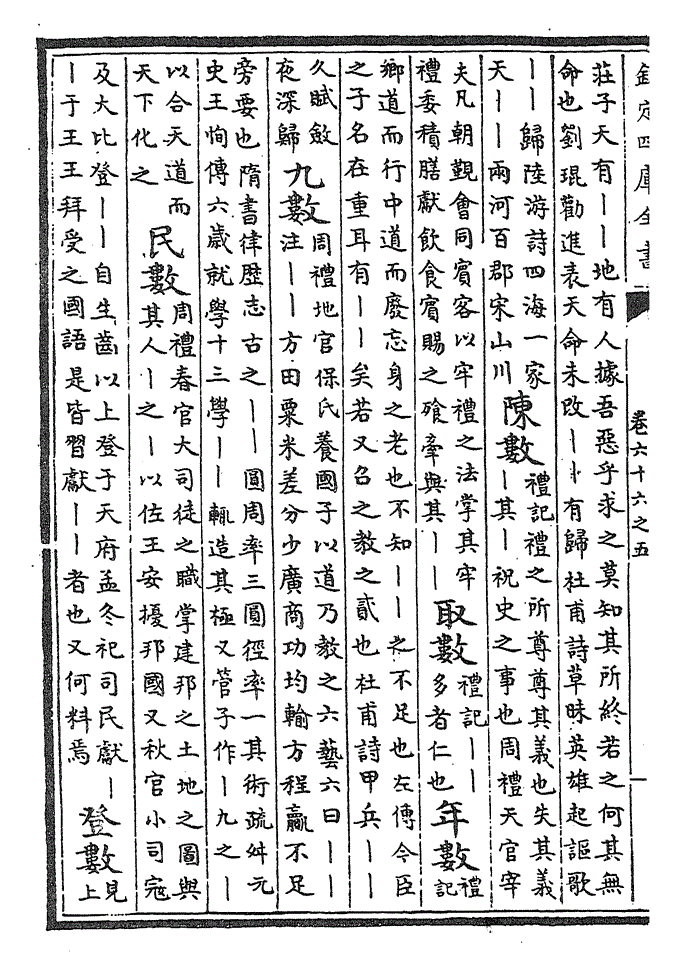 欽定四庫全書 卷六十六之五 一
莊子天有丨丨地有人據吾惡乎求之莫知其所終若之何其無
命也劉琨勸進表天命未改丨丨有歸杜甫詩草昧英雄起謳歌
丨丨歸陸游詩四海一家
天丨丨兩河百郡宋山川
陳數
禮記禮之所尊尊其義也失其義
丨其丨祝史之事也周禮天官宰
夫凡朝覲會同賓客以牢禮之法掌其牢
禮委積膳獻飲食賓賜之飱牽與其丨丨
取數
禮記丨丨
多者仁也
年數
禮
記
鄉道而行中道而廢忘身之老也不知丨丨之不足也左傳令臣
之子名在重耳有丨丨矣若又召之教之貳也杜甫詩甲兵丨丨
久賦斂
夜深歸
九數
周禮地官保氏養國子以道乃教之六藝六曰丨丨
注丨丨方田粟米差分少廣商功均輸方程贏不足
旁要也隋書律歷志古之丨丨圓周率三圓徑率一其術疏舛元
史王恂傳六歲就學十三學丨丨輒造其極又管子作丨九之丨
以合天道而
天下化之
民數
周禮春官大司徒之職掌建邦之土地之圖與
其人丨之丨以佐王安擾邦國又秋官小司宼
及大比登丨丨自生齒以上登于天府孟冬祀司民獻丨
丨于王王拜受之國語是皆習獻丨丨者也又何料焉
登數
見
上